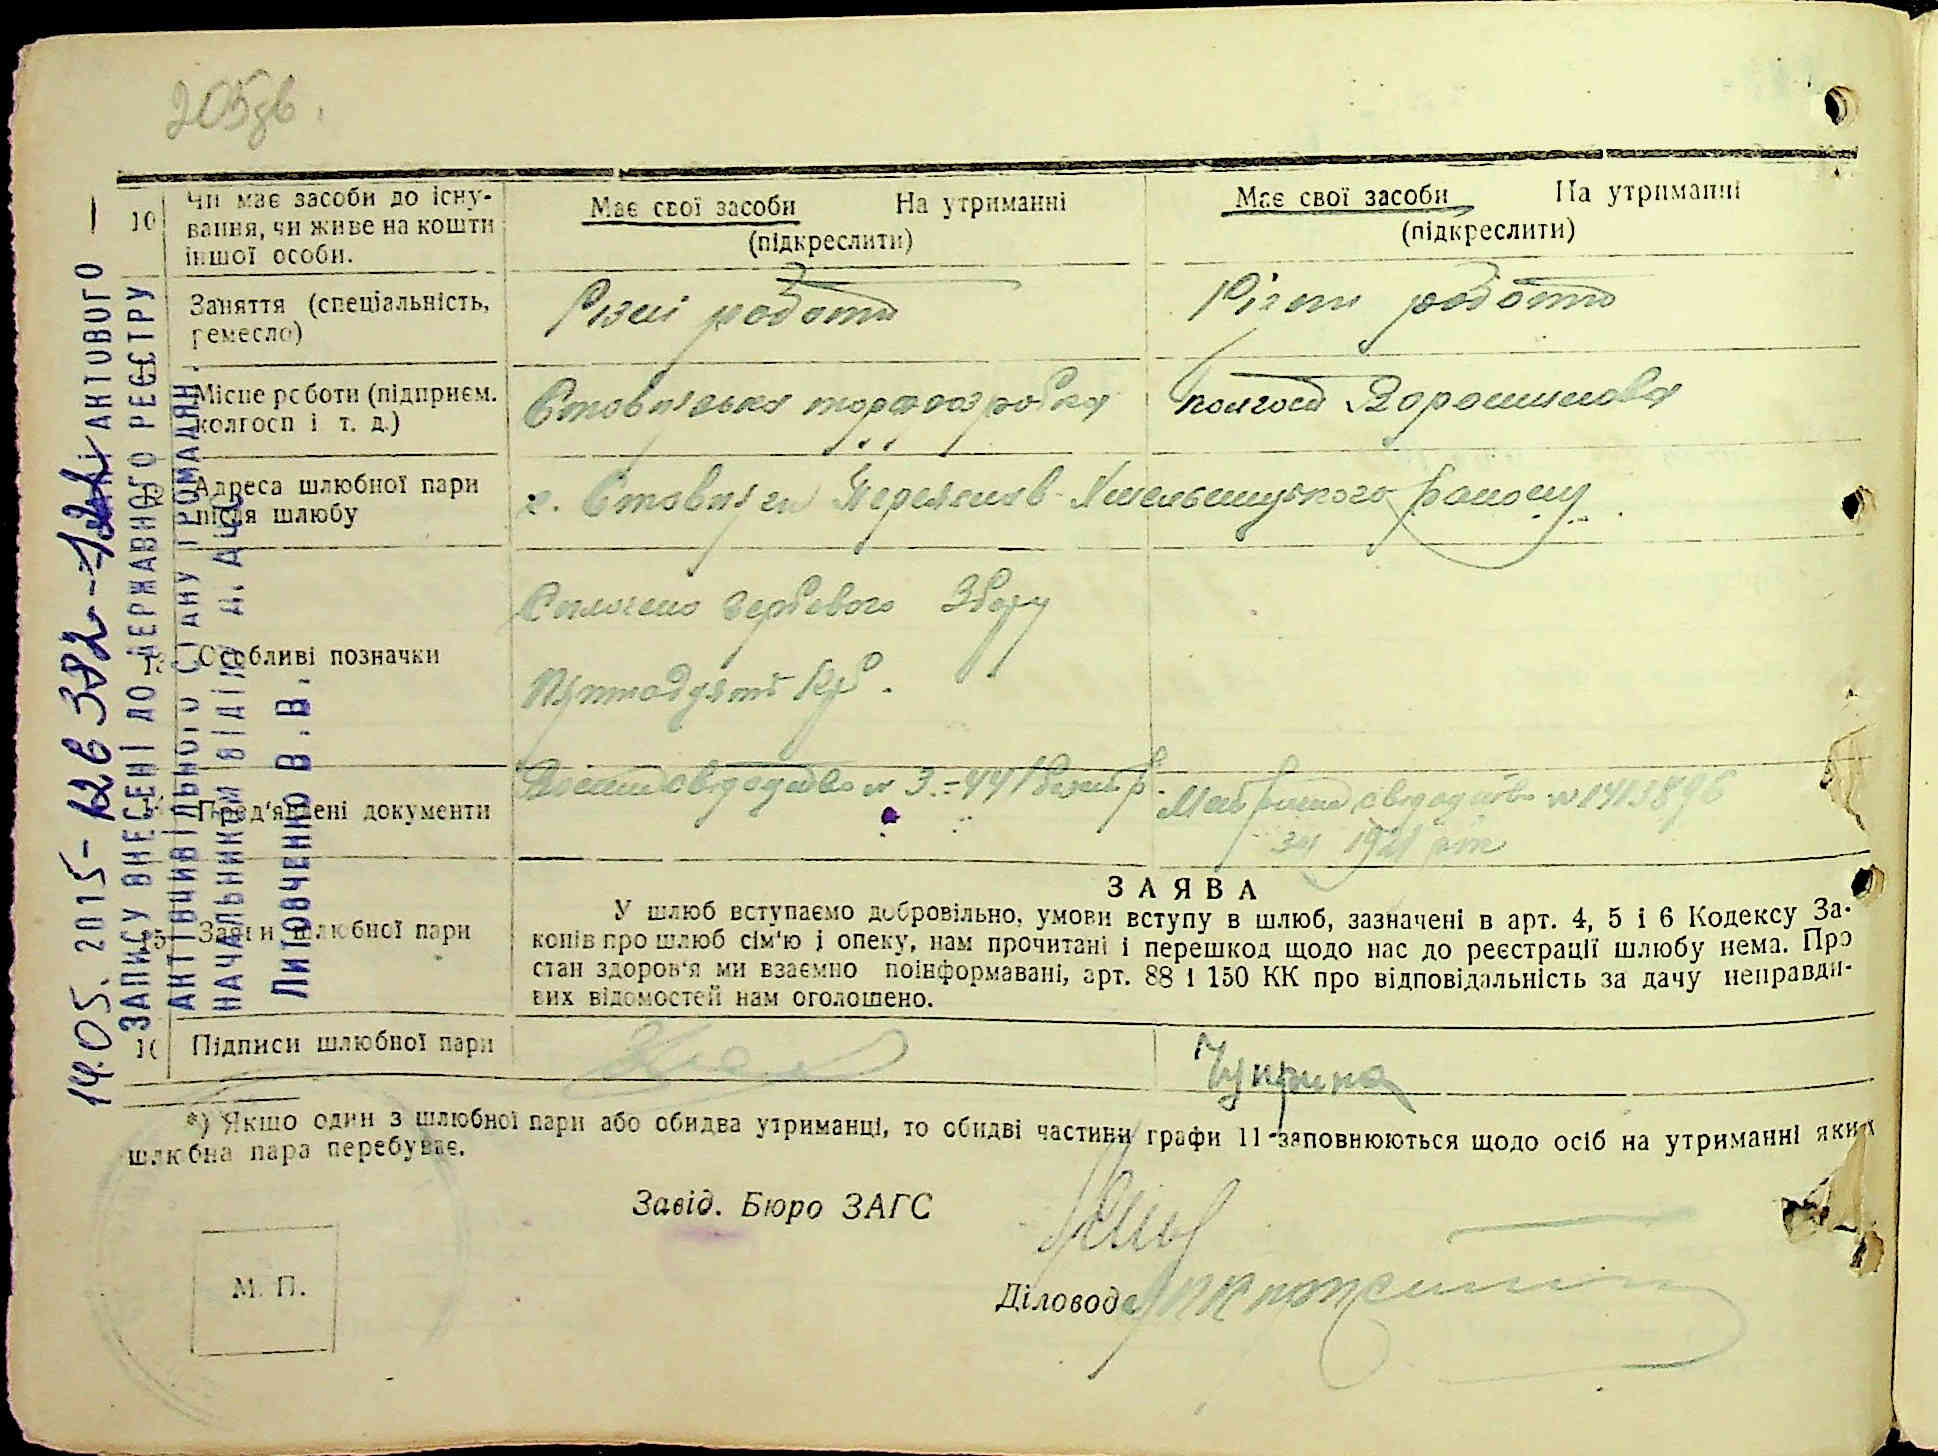 205зв.
10
Чи має засоби до існу-
вання, чи живе на кошти
іншої особи.
Має свої засоби На утриманні
(підкреслити)
Має свої засоби На утриманні
(підкреслити)
Заняття (спеціальність,
ремесло)
Різні роботи
Різні роботи
Місце роботи (підприєм.
колгосп і т. д.)
торфорозробка
колгосп Ворошилова
Адреса шлюбної пари
після шлюбу
Переяслав-Хмельницького району
Особливі позначки
Сплочено гербового збору
крб.
Пред'явлені документи
№ 3.-441
свідоцтво № 1413896
рік
15
Заяви шлюбної пари
ЗАЯВА
У шлюб вступаємо добровільно, умови вступу в шлюб, зазначені в арт. 4, 5 і 6 Кодексу За-
конів про шлюб сім'ю і опеку, нам прочитані і перешкод щодо нас до реєстрації шлюбу нема. Про
стан здоров'я ми взаємно поінформавані, арт. 88 і 150 КК про відповідальність за дачу неправди-
вих відомостей нам оголошено.
Підписи шлюбної пари
Чуприна
*) Якщо один з шлюбної пари або обидва утриманці, то обидві частини графи 11 заповнюються щодо осіб на утриманні яких
шлюбна пара перебуває.
Завід. Бюро ЗАГС
М. П.
Діловод
14.05.2015-
АКТОВОГО
ЗАПИСУ ВНЕСЕНІ ДО ДЕРЖАВНОГО РЕЄСТРУ
АКТІВ ЦИВІЛЬНОГО СТАНУ ГРОМАДЯН.
НАЧАЛЬНИКОМ ВІДДІЛУ
Литовченко В.В.